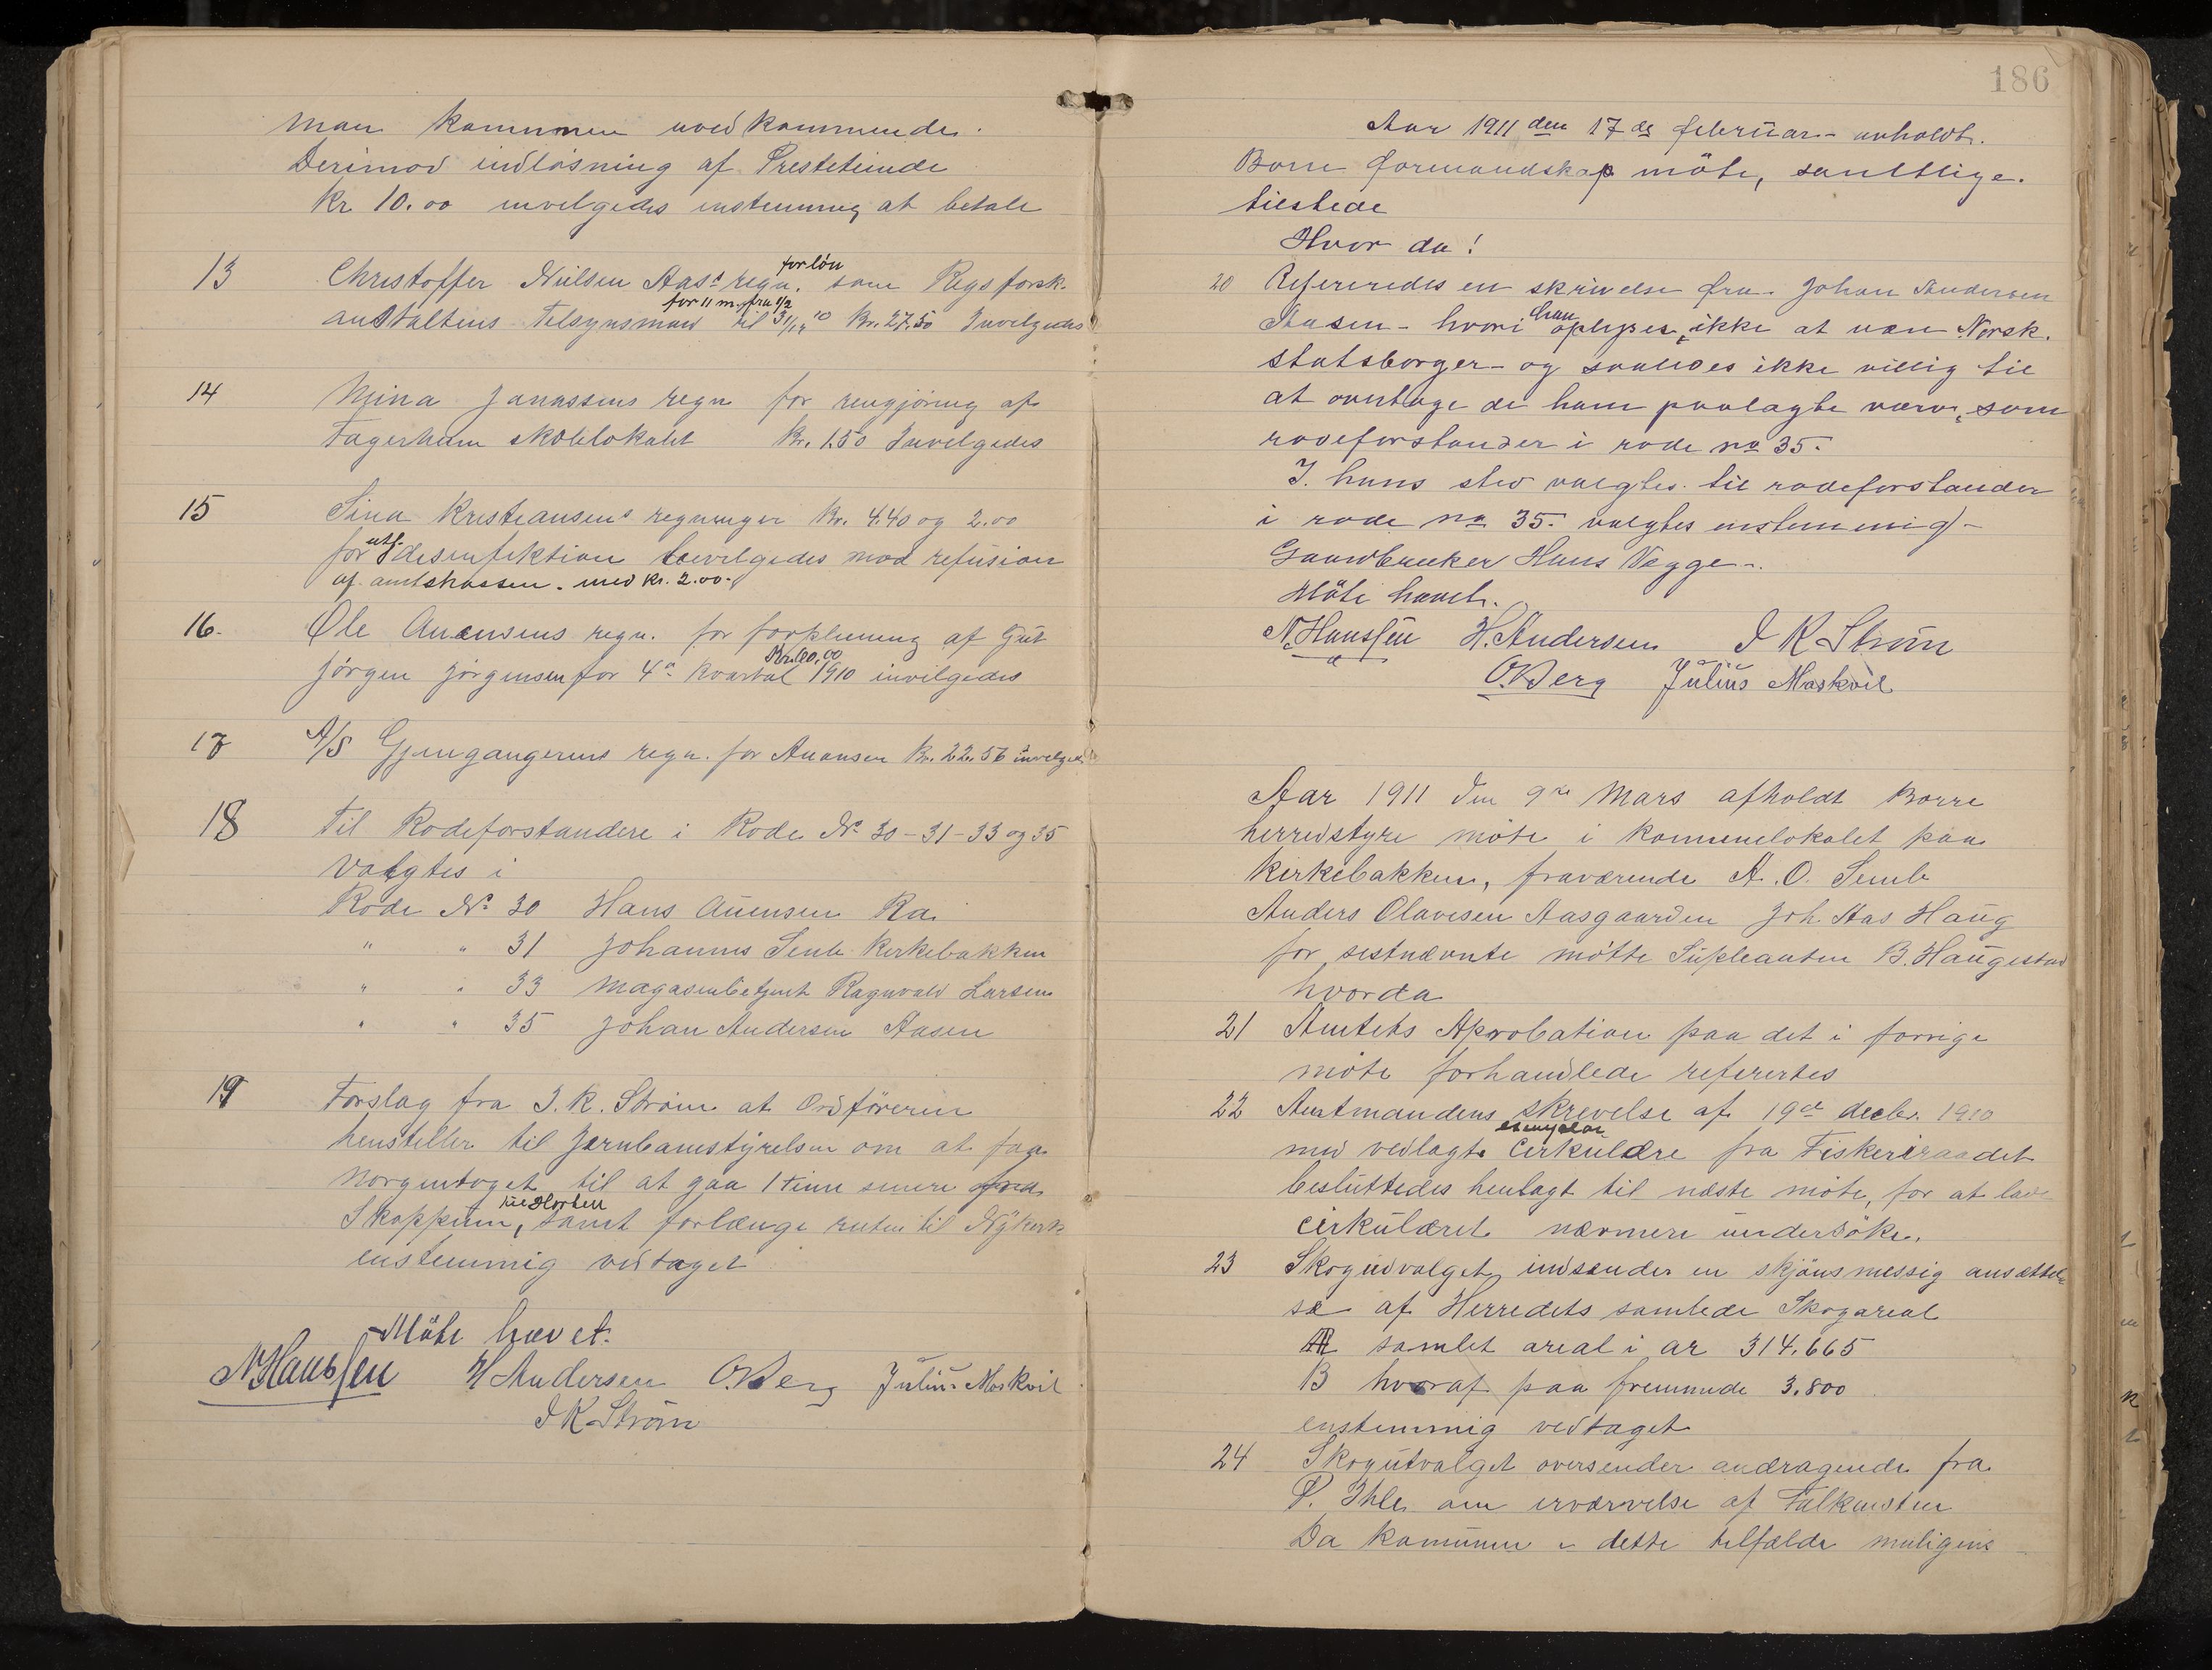 man kommunen uvedkommende.
Derimod indløsning af Prestetiende
Kr 10.00 invilgedes enstemmig at betale
13 Christoffer Nielsen Aas's regn. for løn som Rugsforsk.
anstaltens Tilsynsmand for 11 m. fra 1/2 til 31/12 10 Kr. 27.50 Invilgedes
14 Mina Janassens regn for rengjøring af
Fagerheim skolelokalet Kr. 1.50 Invilgedes
15 Sina Kristiansens regninger Kr. 4.40 og 2.00
for utf. desinfektion bevilgedes mod refusion
af amtskassen. med Kr. 2.00.
16. Ole Auensens regn. for forpleining af Gut
Jørgen Jørgensen for 4de kvartal Kr. 60.00 1910 invilgedes
17 A/S Gjengangerens regn. for Anonsen Kr. 22.56 invelged
18 Til Rodeforstandere i Rode No 30-31-33 og 35
valgtes i
Rode No 30 Hans Auensen Ra
" " 31 Johannes Semb Kirkebakken
" " 33 Magasinbetjent Ragnvald Larsen
" " 35 Johan Andersen Aasen
19 Forslag fra I. K. Strøm at Ordføreren
henstiller til Jernbanestyrelsen om at faa
morgentoget til at gaa 1 time senere fra
Skoppum til Horten, samt forlænge ruten til Nykirk
enstemmig vedtaget
Møte hævet.
N Hanssen H Andersen O. Berg Julius Moskvil
I K Strøm
186
Aar 1911 den 17de februar anholdt.
Borre formandskap møte, samtlige.
tilstede
Hvor da!
20 Refereredes en skrivelse fra Johan Andersen
Aasen - hvori han oplyses, ikke at være Norsk.
statsborger og saaledes ikke villig til
at overtage de ham paalagte værv, som
rodeforstander i rode no 35.
I hans sted valgtes til rodeforstander
i rode no 35. valgtes enstemmig -
Gaardbruker Hans Vegge -.
Møte hævet.
N. Hanssen H. Andersen I K Strøm
O. Berg Julius Moskvil
Aar 1911 den 9de Mars afholdt Borre
herredstyre møte i Komunelokalet paa
Kirkebakken, fraværende A. O. Semb
Anders Olavesen Aasgaarden Joh. Aas Haug
for sistnævnte møtte Supleanten B. Haugestad
hvorda
21 Amtets Aprobation paa det i forrige
møte forhandlede referertes
22 Amtmandens skrevelse af 19de decbr. 1910
med vedlagte exemplar cirkulære fra Fiskeriraadet
besluttedes henlagt til næste møte, for at lade
cirkulæret nærmere undersøke.
23 Skogudvalget indsender en skjønsmessig ansættel
se af Herredets samlede Skogareal
A samlet areal i ar 314.665
B hvoraf paa fremmede 3.800
enstemmig vedtaget
24 Skogutvalget oversender andragende fra
P. Ihle om erværvelse af Falkensten
Da Komunen i dette tilfælde muligens